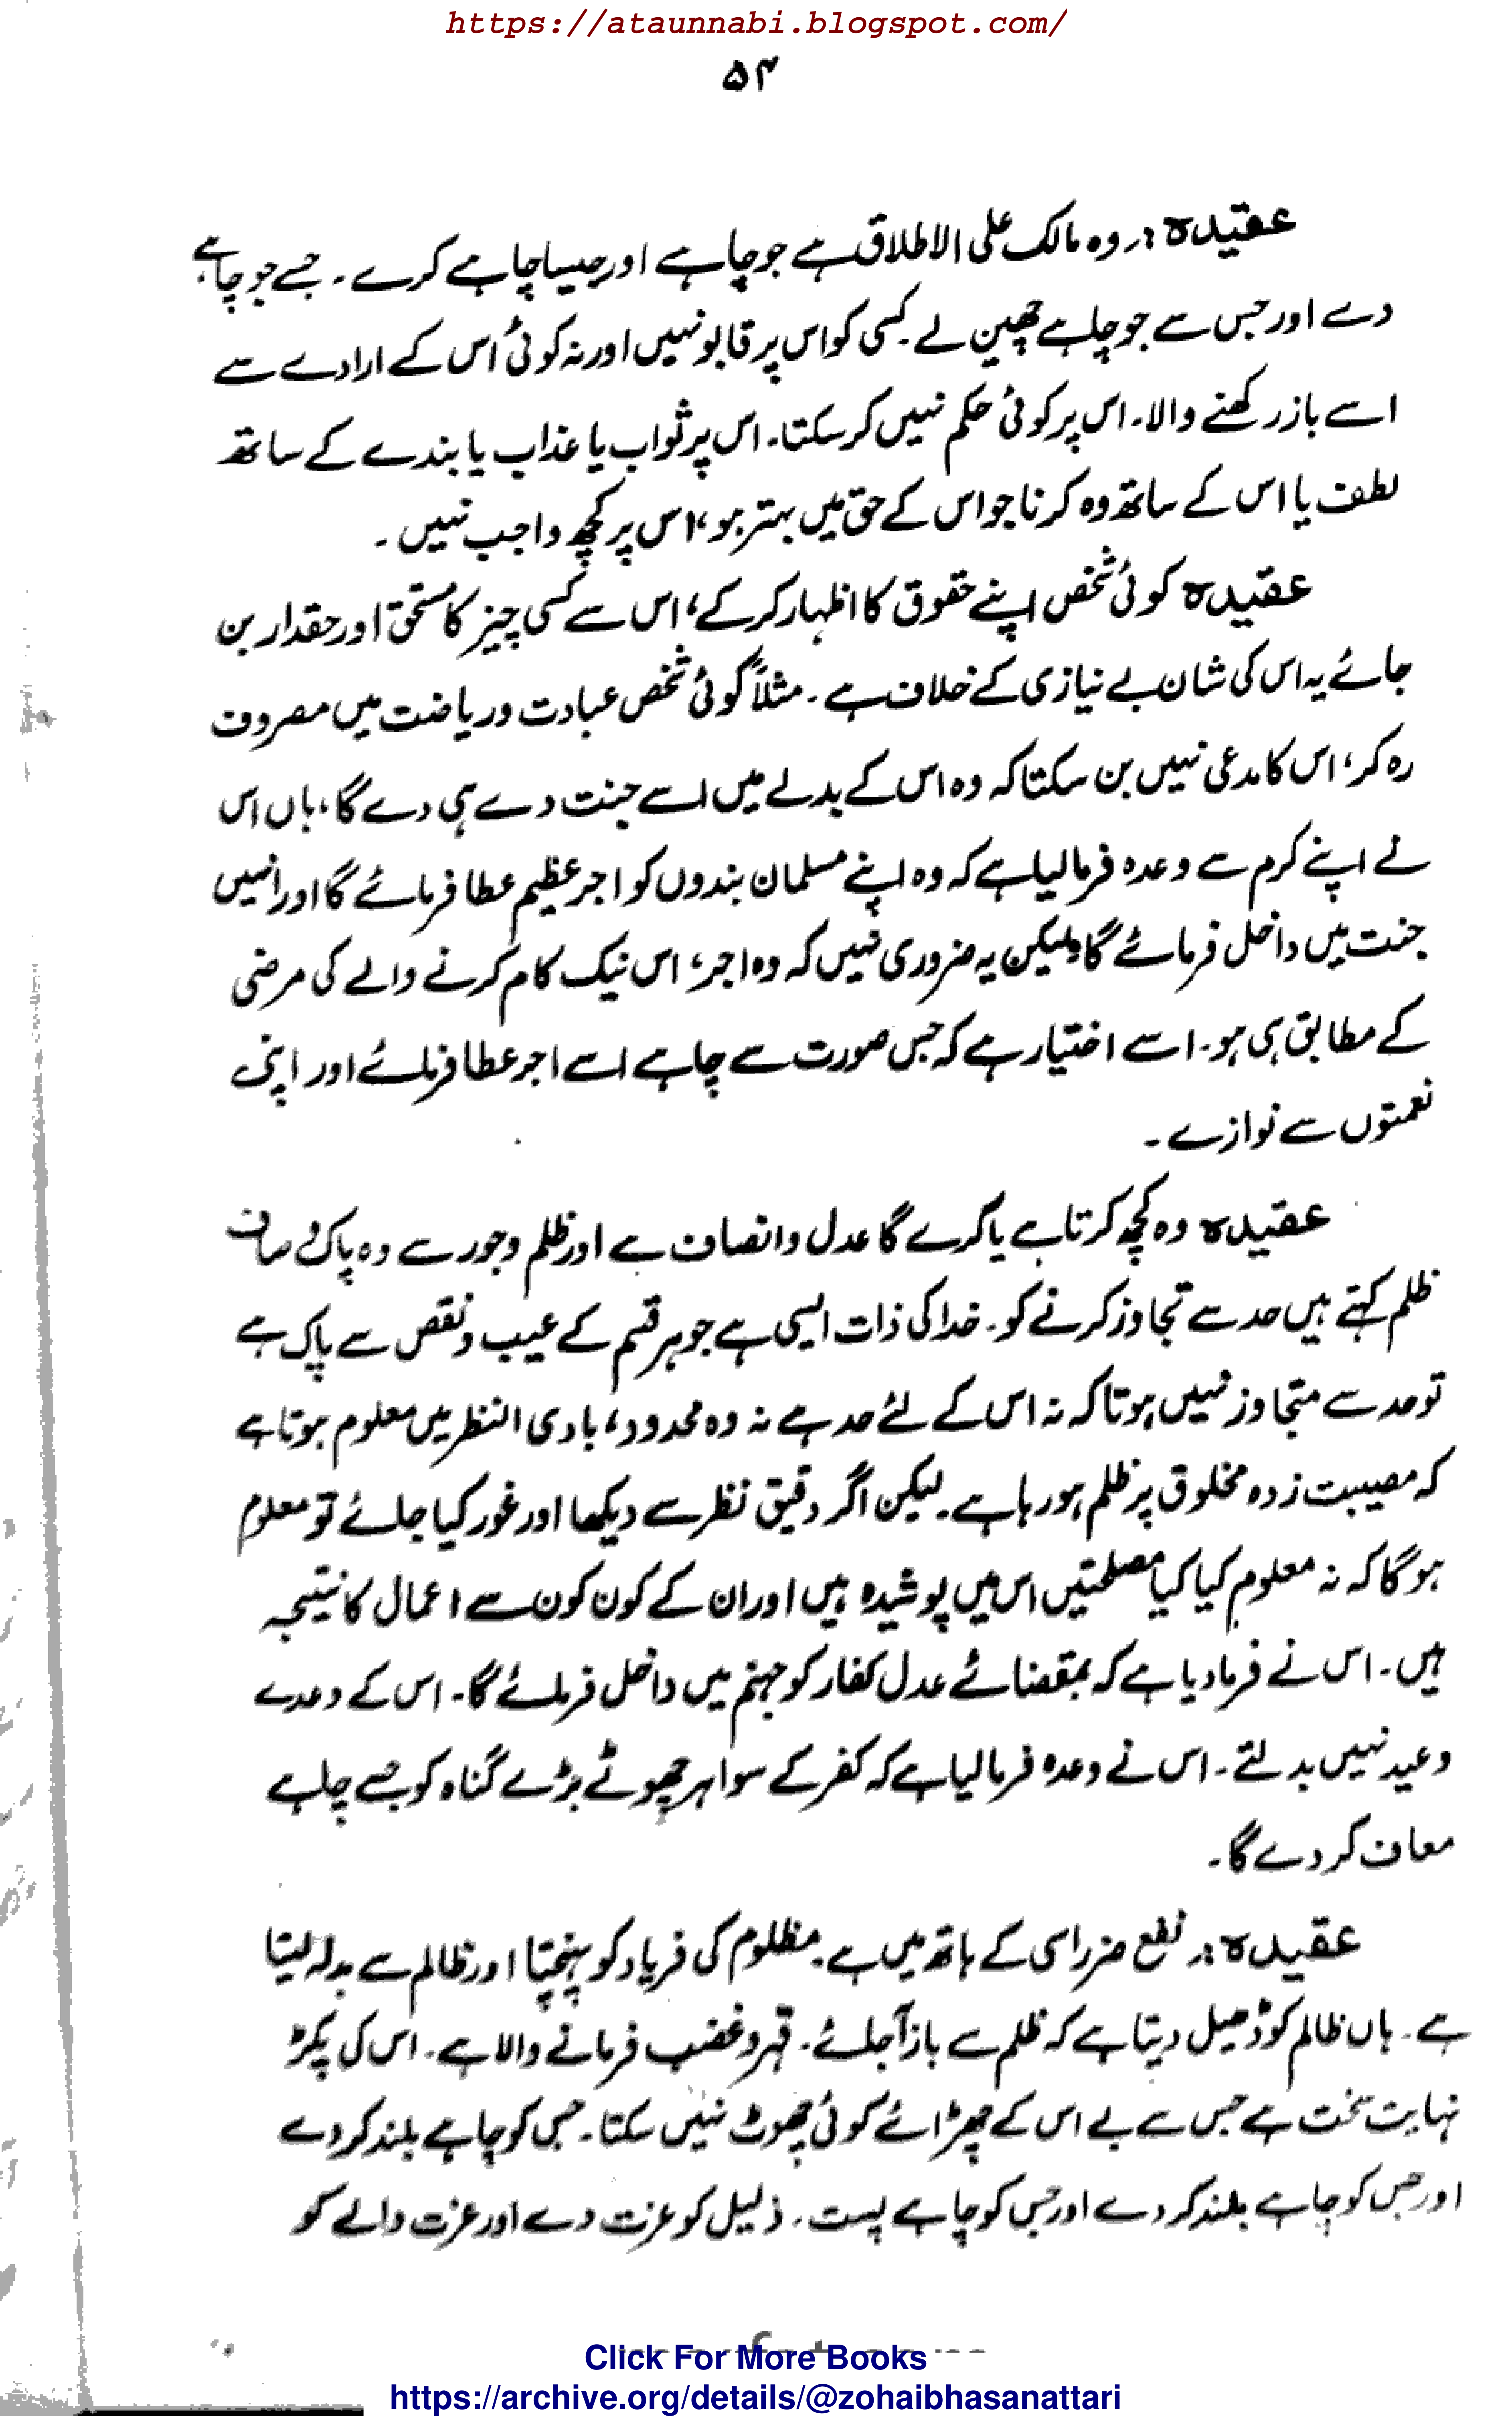 https://ataunnabi.blogspot.com/
۵۴
عقیدہ :۔ وہ مالک علی الاطلاق ہے جو چاہے اور جیسا چاہے کرے ۔ جسے جو چاہے
دے اور جس سے جو چاہے چھین لے ۔ کسی کو اس پر قابو نہیں اور نہ کوئی اُس کے ارادے سے
اسے باز رکھنے والا۔ اس پر کوئی حکم نہیں کرسکتا۔ اس پر ثواب یا عذاب یا بندے کے ساتھ
لطف یا اس کے ساتھ وہ کرنا جو اس کے حق میں بہتر ہو ، اس پر کچھ واجب نہیں ۔
عقیدہ کوئی شخص اپنے حقوق کا اظہار کرکے ، اس سے کسی چیز کا مستحق اور حقدار بن
جائے یہ اس کی شان بے نیازی کے خلاف ہے ۔ مثلاً کوئی شخص عبادت و ریاضت میں مصروف
رہ کر ، اس کا مدعی نہیں بن سکتا کہ وہ اس کے بدلے میں اسے جنت دے ہی دے گا ، ہاں اس
نے اپنے کرم سے وعدہ فرمالیا ہے کہ وہ اپنے مسلمان بندوں کو اجر عظیم عطا فرمائے گا اور انہیں
جنت میں داخل فرمائے گا ۔ لیکن یہ ضروری نہیں کہ وہ اجر ، اس نیک کام کرنے والے کی مرضی
کے مطابق ہی ہو ۔ اسے اختیار ہے کہ جس صورت سے چاہے اسے اجر عطا فرمائے اور اپنی
نعمتوں سے نوازے ۔
عقیدہ وہ کچھ کرتا ہے یا کرے گا عدل و انصاف ہے اور ظلم و جور سے وہ پاک و صاف
ظلم کہتے ہیں حد سے تجاوز کرنے کو ۔ خدا کی ذات ایسی ہے جو ہر قسم کے عیب و نقص سے پاک ہے
تو حد سے متجاوز نہیں ہوتا کہ نہ اس کے لئے حد ہے نہ وہ محدود ، بادی النظر میں معلوم ہوتا ہے
کہ مصیبت زدہ مخلوق پر ظلم ہورہا ہے ۔ لیکن اگر دقیق نظر سے دیکھا اور غور کیا جائے تو معلوم
ہوگا کہ نہ معلوم کیا کیا مصلحتیں اس میں پوشیدہ ہیں اور ان کے کون کون سے اعمال کا نتیجہ
ہیں ۔ اس نے فرمادیا ہے کہ بمقضائے عدل کفار کو جہنم میں داخل فرمائے گا۔ اس کے وعدے
وعید نہیں بدلتے ۔ اس نے وعدہ فرمالیا ہے کہ کفر کے سوا ہر چھوٹے بڑے گناہ کو جسے چاہے
معاف کردے گا ۔
عقیدہ :۔ نفع ضرر اسی کے ہاتھ میں ہے ۔ مظلوم کی فریاد کو پہنچتا اور ظالم سے بدلہ لیتا
ہے ۔ ہاں ظالم کو ڈھیل دیتا ہے کہ ظلم سے باز آجائے ۔ قہر و غضب فرمانے والا ہے ۔ اس کی پکڑ
نہایت سخت ہے جس سے بے اس کے چھڑائے کوئی چھوٹ نہیں سکتا ۔ جس کو چاہے بلند کردے
اور جس کو چاہے بلند کردے اور جس کو چاہے پست ۔ ذلیل کو عزت دے اور عزت والے کو
Click For More Books
https://archive.org/details/@zohaibhasanattari